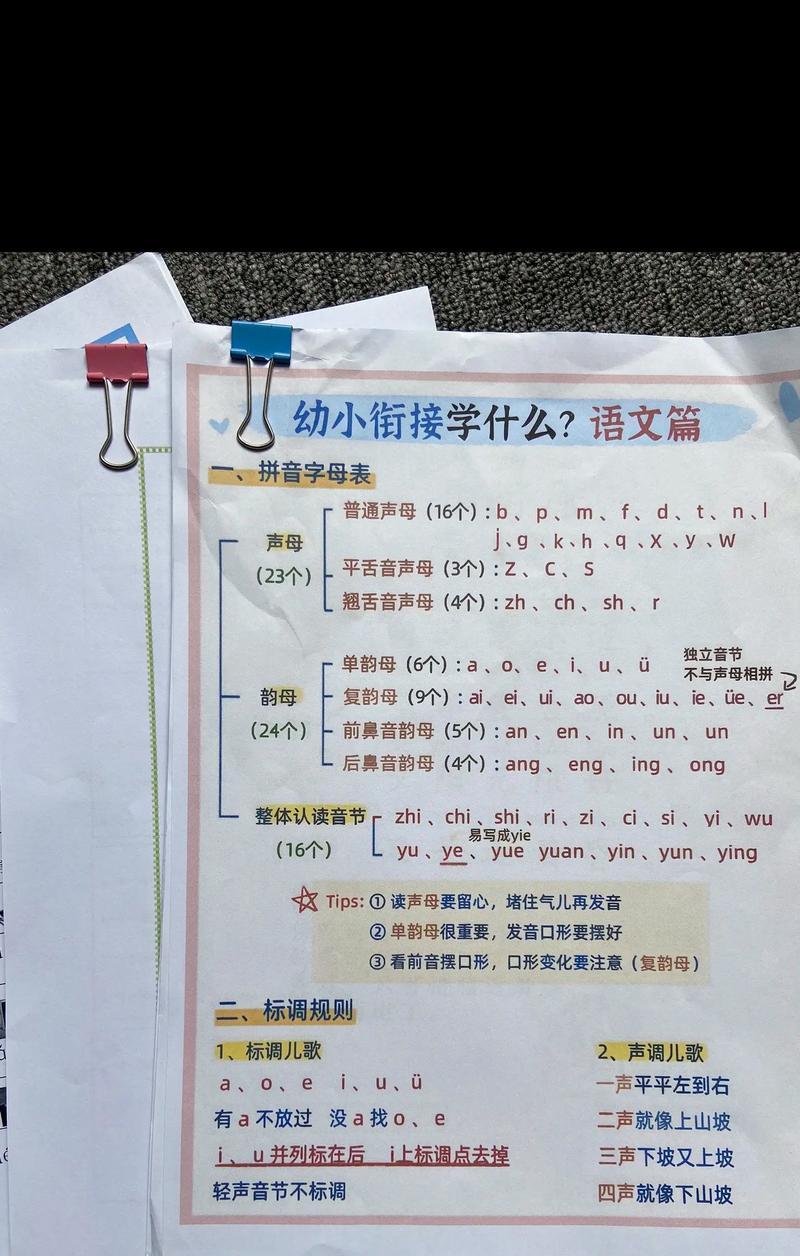 幼小衔接学什么？语文篇
一、拼音字母表
声母
（23个）
普通声母（16个）：b、p、m、f、d、t、n、l
j、g、k、h、q、x、y、w
平舌音声母（3个）：z、c、s
翘舌音声母（4个）：zh、ch、sh、r
韵母
（24个）
单韵母（6个）：a、o、e、i、u、ü
独立音节
不与声母相拼
复韵母（9个）：ai、ei、ui、ao、ou、iu、ie、üe、er
前鼻音韵母（5个）：an、en、in、un、un
后鼻音韵母（4个）：ang、eng、ing、ong
整体认读音节
（16个）
zhi、chi、shi、ri、zi、ci、si、yi、wu
易写成yie
yu、ye、yue yuan、yin、yun、ying
Tips：① 读声母要留心，堵住气儿再发音
② 单韵母很重要，发音口形要摆好
③ 看前音摆口形，口形变化要注意（复韵母）
二、标调规则
1、标调儿歌
a、o、e i、u、ü
有a不放过 没a找o、e
i、u并列标在后 i上标调点去掉
轻声音节不标调
2、声调儿歌
一声平平左到右
二声就像上山坡
三声下坡又上坡
四声就像下山坡